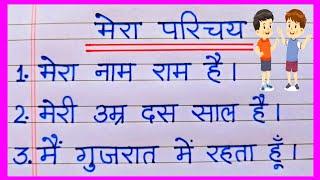 मेरा परिचय
1. मेरा नाम राम है।
2. मेरी उम्र दस साल है।
3. मैं गुजरात में रहता हूँ।